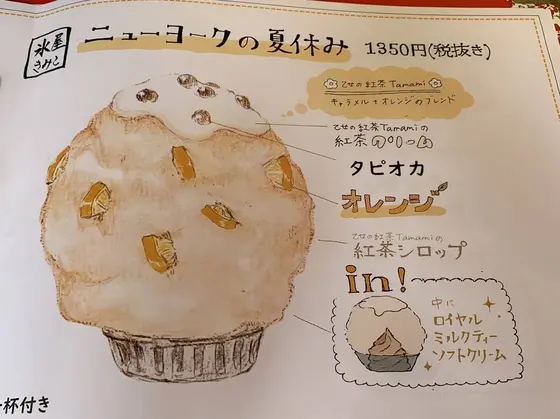 氷屋
きみシ
ニューヨークの夏休み 1350円(税抜き)
乙女の紅茶Tamami
キャラメル+オレンジのブレンド
乙女の紅茶Tamamiの
紅茶
タピオカ
オレンジ
乙女の紅茶Tamamiの
紅茶シロップ
in!
中に
ロイヤル
ミルクティー
ソフトクリーム
杯付き